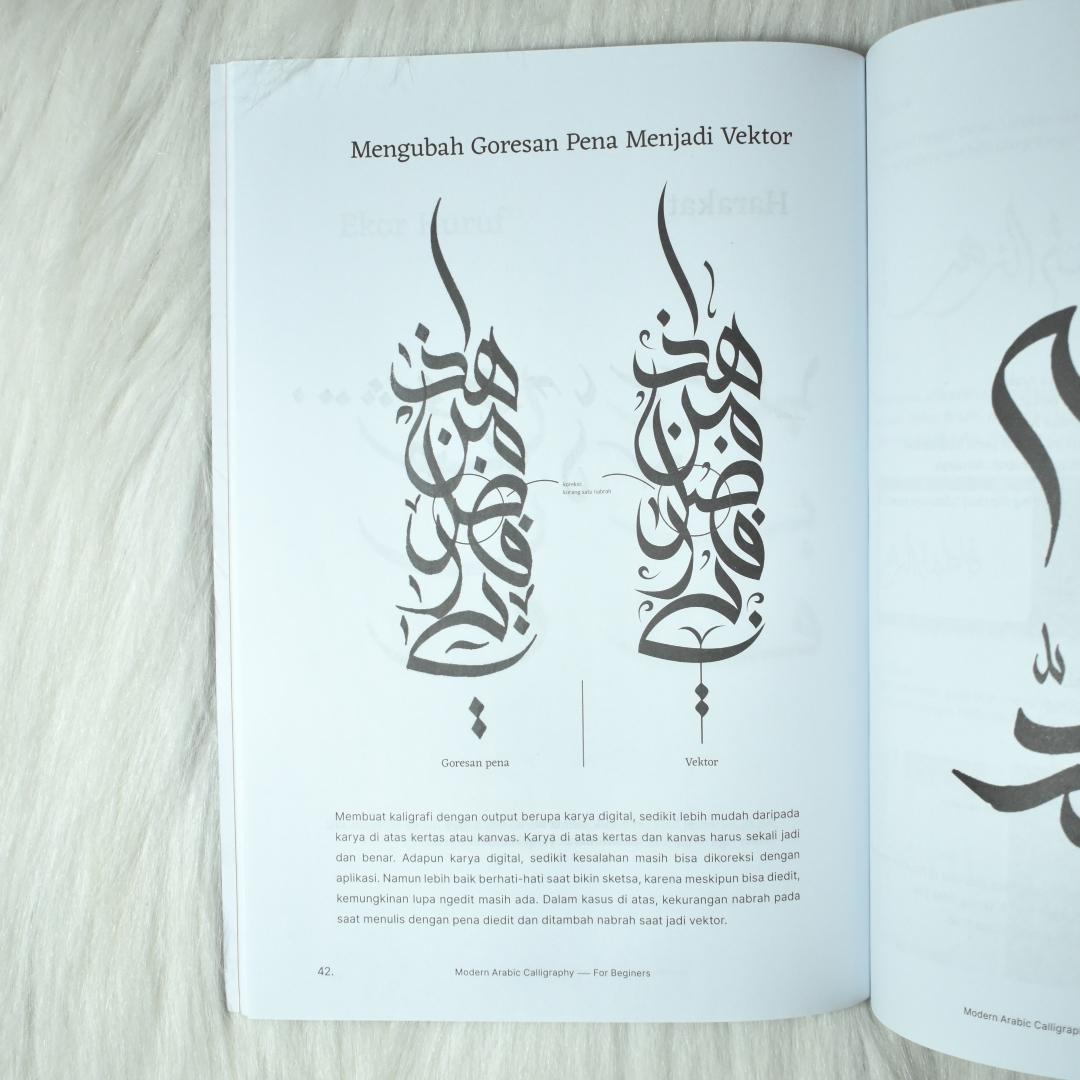 Mengubah Goresan Pena Menjadi Vektor
هذا من فضل ربي
هذا من فضل ربي
koreksi:
kurang satu nabrah
Goresan pena
Vektor
Membuat kaligrafi dengan output berupa karya digital, sedikit lebih mudah daripada
karya di atas kertas atau kanvas. Karya di atas kertas dan kanvas harus sekali jadi
dan benar. Adapun karya digital, sedikit kesalahan masih bisa dikoreksi dengan
aplikasi. Namun lebih baik berhati-hati saat bikin sketsa, karena meskipun bisa diedit,
kemungkinan lupa ngedit masih ada. Dalam kasus di atas, kekurangan nabrah pada
saat menulis dengan pena diedit dan ditambah nabrah saat jadi vektor.
42.
Modern Arabic Calligraphy — For Beginers
Modern Arabic